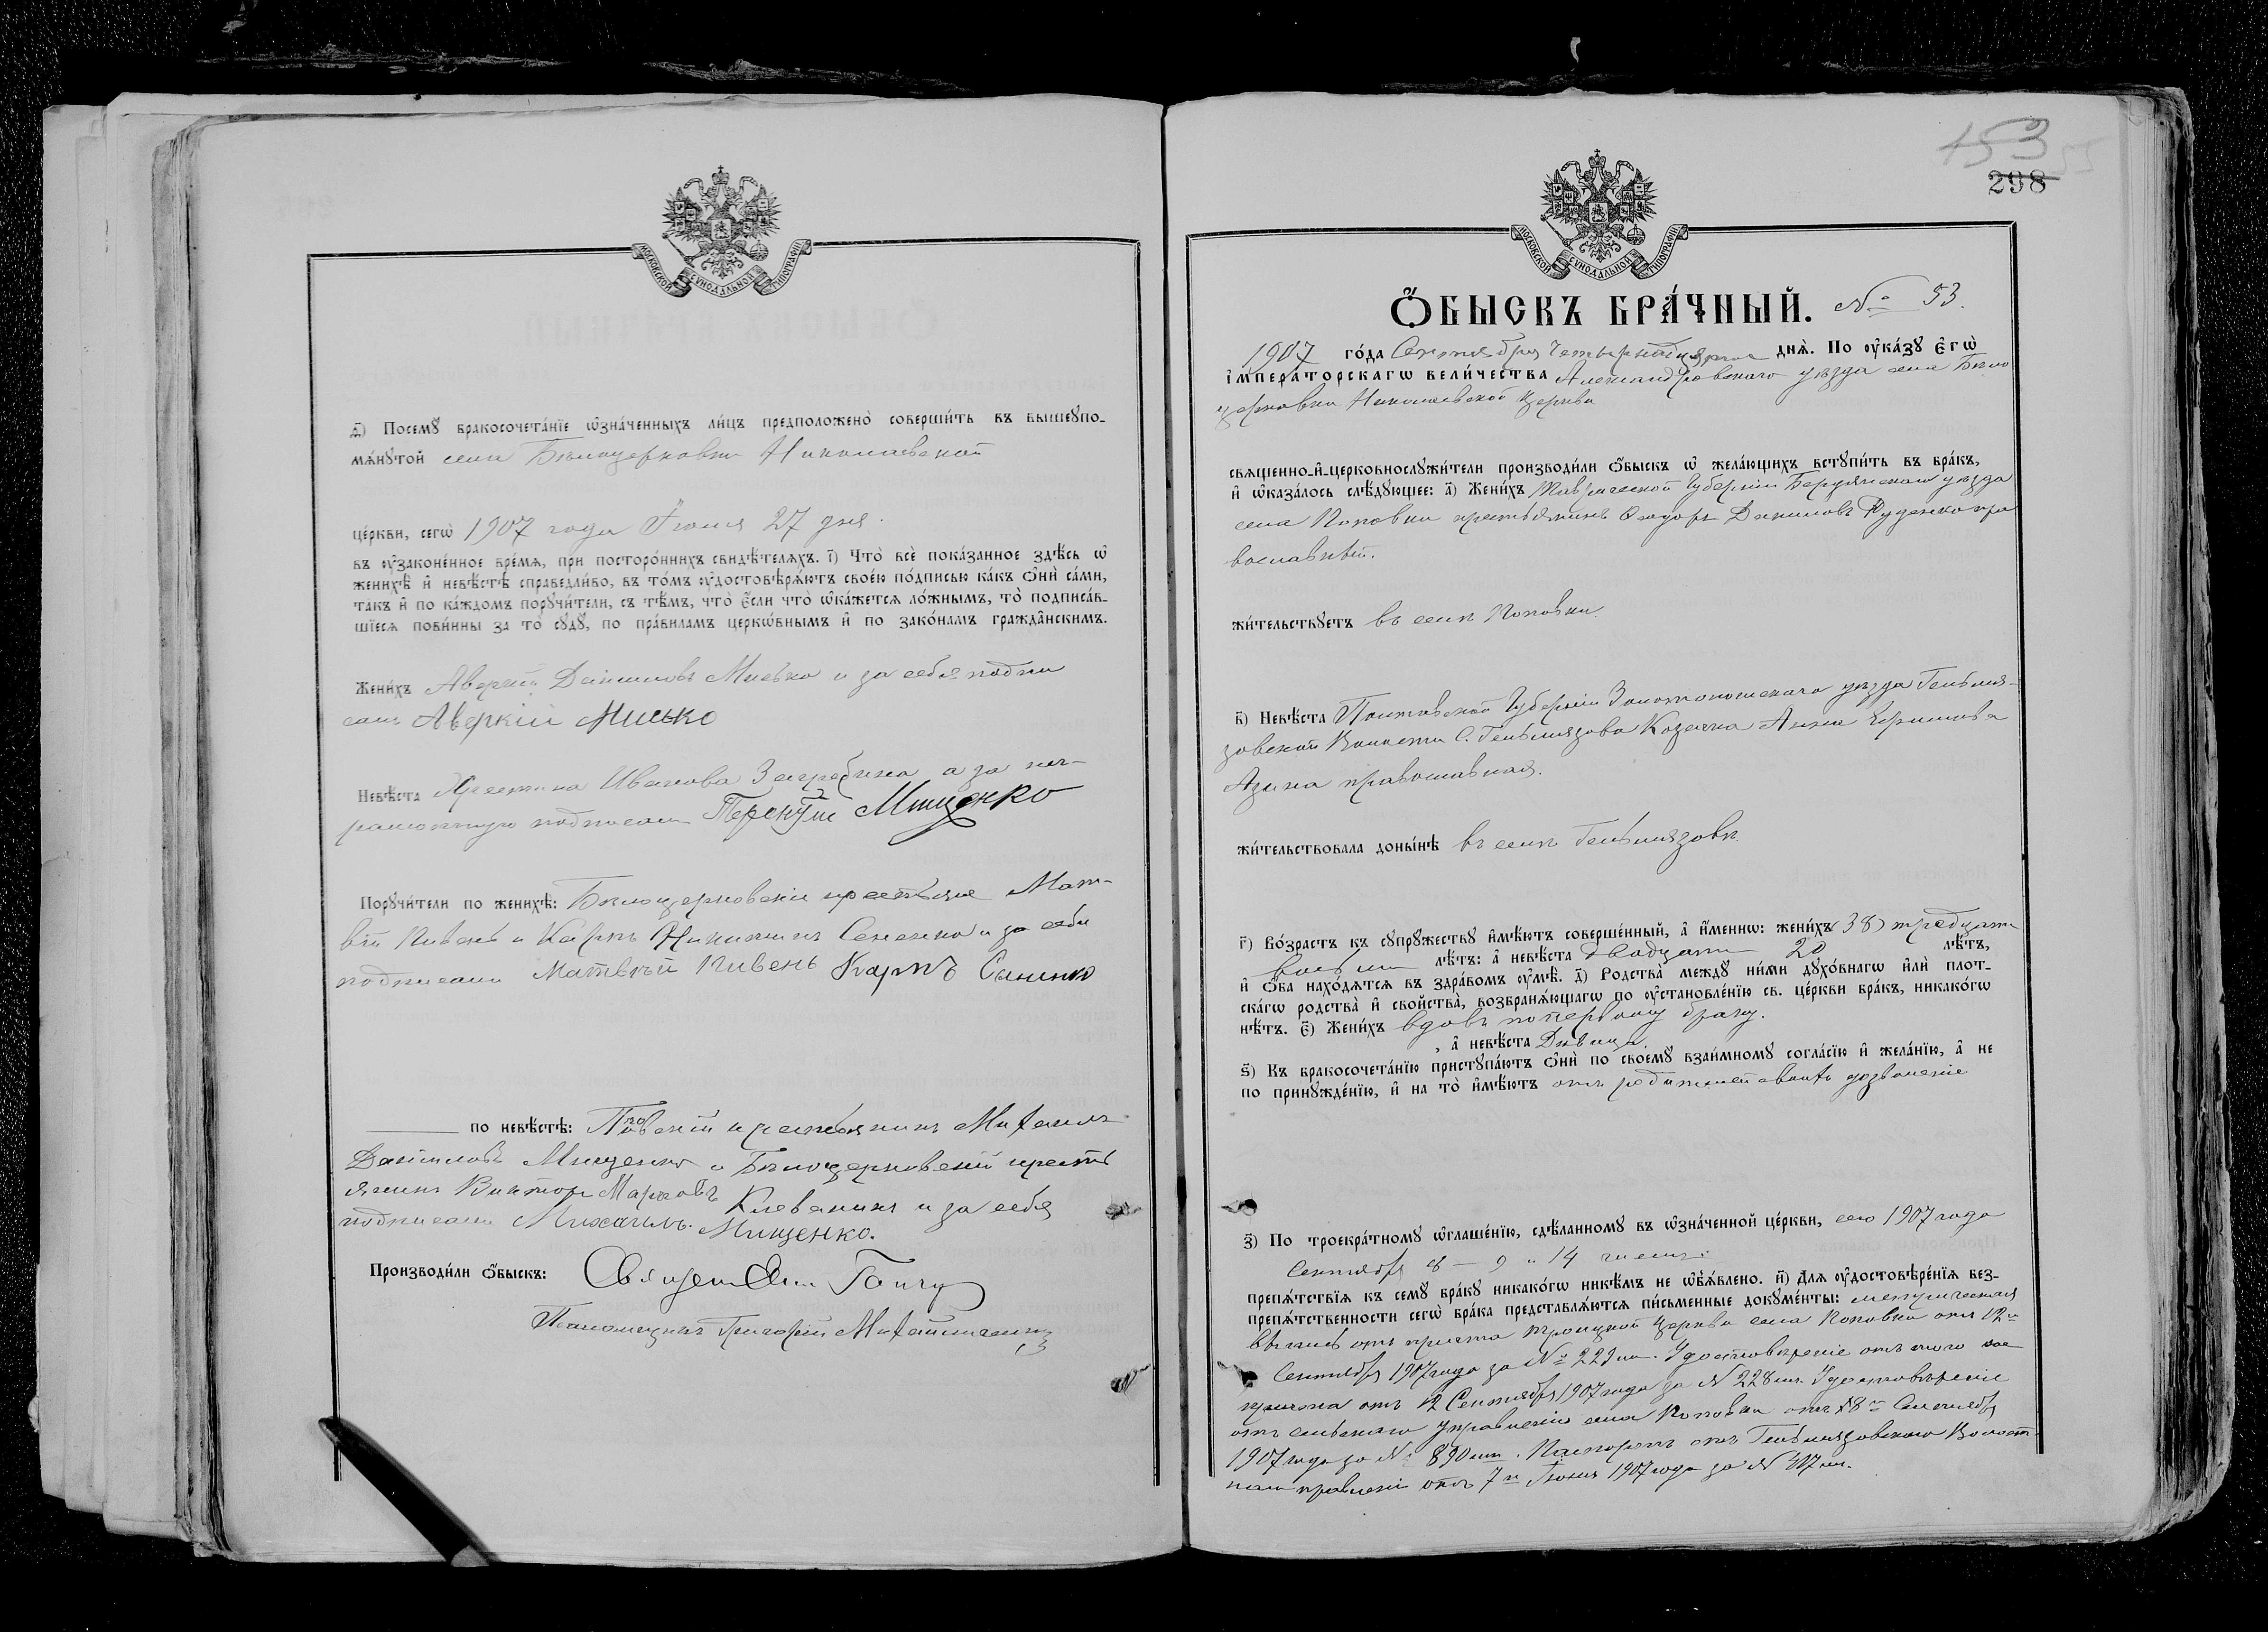 МОСКОВСКОЙ СѴНОДАЛЬНОЙ ТИПОГРАФІИ
д҃) Посемꙋ бракосочета́нїе ѡ҆зна́ченныхъ ли́цъ предположено̀ соверши́ть въ вышеꙋпо-
мѧ́нꙋтой села Бѣлоцерковки Николаевской
це́ркви, сегѡ̀ 1907 года Іюля 27 дня.
въ ᲂу҆законе́нное вре́мѧ, при посторо́ннихъ свидѣ́телѧхъ. і҃) Что̀ всѐ пока́занное здѣ́сь ѡ҆
женихѣ̀ и҆ невѣ́стѣ справедли́во, въ то́мъ ᲂу҆достовѣрѧ́ютъ свое́ю по́дписью ка́къ ѻ҆нѝ са́ми,
такъ и҆ по ка́ждомъ порꙋчи́тели, съ тѣ́мъ, что̀ є҆́сли что̀ ѡ҆ка́жетсѧ ло́жнымъ, то̀ подписа́в-
шїесѧ пови́нны за то̀ сꙋдꙋ̀, по пра́виламъ церко́внымъ и҆ по зако́намъ гражда́нскимъ.
Жени́хъ Аверкій Даниловъ Мисько и за себя подпи
салъ Аверкій Мисько
Невѣ́ста Христина Иванова Заграбина а за не-
грамотную подписалъ Терентій Мищенко
Порꙋчи́тели по женихѣ̀: Бѣлоцерковскіе крестьяне Мат-
вѣй Пивень и Карпъ Сененко и за себя
подписали Матвѣй Пивень Карпъ Синенко
по невѣ́стѣ: крестьянинъ Михаилъ
Даниловъ Мищенко и Бѣлоцерковскій кресть
янинъ Викторъ Марковъ и за себя
подписали Михаилъ Мищенко.
Производи́ли ѻ҆́быскъ: Священникъ
Псаломщикъ Григорій
298
МОСКОВСКОЙ СѴНОДАЛЬНОЙ ТИПОГРАФІИ
Ѻ҆́БЫСКЪ БРА́ЧНЫЙ. № 53.
1907 го́да Сентября Четырнадцатаго днѧ̀. По ᲂу҆ка́зꙋ Є҆гѡ̀
і҆мпера́торскагѡ вели́чества Александровскаго уѣзда села Бѣло
церковки Николаевской церкви
свѧще́нно-и҆-церковнослꙋжи́тели производи́ли ѻ҆́быскъ ѡ҆ жела́ющихъ встꙋпи́ть въ бра́къ,
и҆ ѡ҆каза́лось слѣ́дꙋющее: а҃) Жени́хъ Таврической Губерніи Бердянскаго уѣзда
села Поповки крестьянинъ Ѳеодоръ Даниловъ Руденко пра
вославный.
жи́тельствꙋетъ въ селѣ Поповки
в҃) Невѣ́ста Полтавской Губерніи Золотоношскаго уѣзда Гельмя-
зовской Волости С. Гельмязова Козачка Анна
православная.
жи́тельствовала доны́нѣ въ селѣ Гельмязовѣ.
г҃) Во́зрастъ къ сꙋпрꙋ́жествꙋ и҆мѣ́ютъ соверше́нный, а҆ и҆́меннѡ: жени́хъ (38) тридцати
восьми лѣ́тъ: а҆ невѣ́ста двадцати 20 лѣ́тъ,
и҆ ѻ҆́ба нахо́дѧтсѧ въ здра́вомъ ᲂу҆мѣ̀. д҃) Родства̀ междꙋ ни́ми дꙋхо́внагѡ и҆лѝ плот-
ска́гѡ родства̀ и҆ сво́йства, возбранѧ́ющагѡ по ᲂу҆становле́нїю св. це́ркви бра́къ, никако́гѡ
нѣ́тъ. є҃) Жени́хъ вдовъ по первому браку.
, а҆ невѣ́ста Дѣвица.
ѕ҃) Къ бракосочета́нїю пристꙋпа́ютъ ѻ҆нѝ по своемꙋ̀ взаи́мномꙋ согла́сїю и҆ жела́нїю, а҆ не
по принꙋжде́нїю, и҆ на то̀ и҆мѣ́ютъ отъ родителей своихъ дозволеніе
з҃) По троекра́тномꙋ ѡ҆глаше́нїю, сдѣ́ланномꙋ въ ѡ҆зна́ченной це́ркви, сего 1907 года
Сентября 8 — 9 и 14 числа.
препѧ́тствїѧ къ семꙋ̀ бра́кꙋ никако́гѡ никѣ́мъ не ѡ҆б̾ѧ́влено. и҃) Для ᲂу҆достовѣре́нїѧ без-
препѧ́тственности сегѡ̀ бра́ка представлѧ́ютсѧ пи́сьменные докꙋме́нты: метрическая
выпись отъ причта Троицкой церкви села Поповки отъ 12го
Сентября 1907 года за № 229мъ. Удостовѣреніе отъ того же
причта отъ 12 Сентября 1907 года за № 228мъ. Удостовѣреніе
отъ сельскаго Управленія села Поповки отъ Сентября
1907 года за № 890мъ. Паспортъ отъ Гельмязовскаго Волост-
наго правленія отъ 7го Іюня 1907 года за №